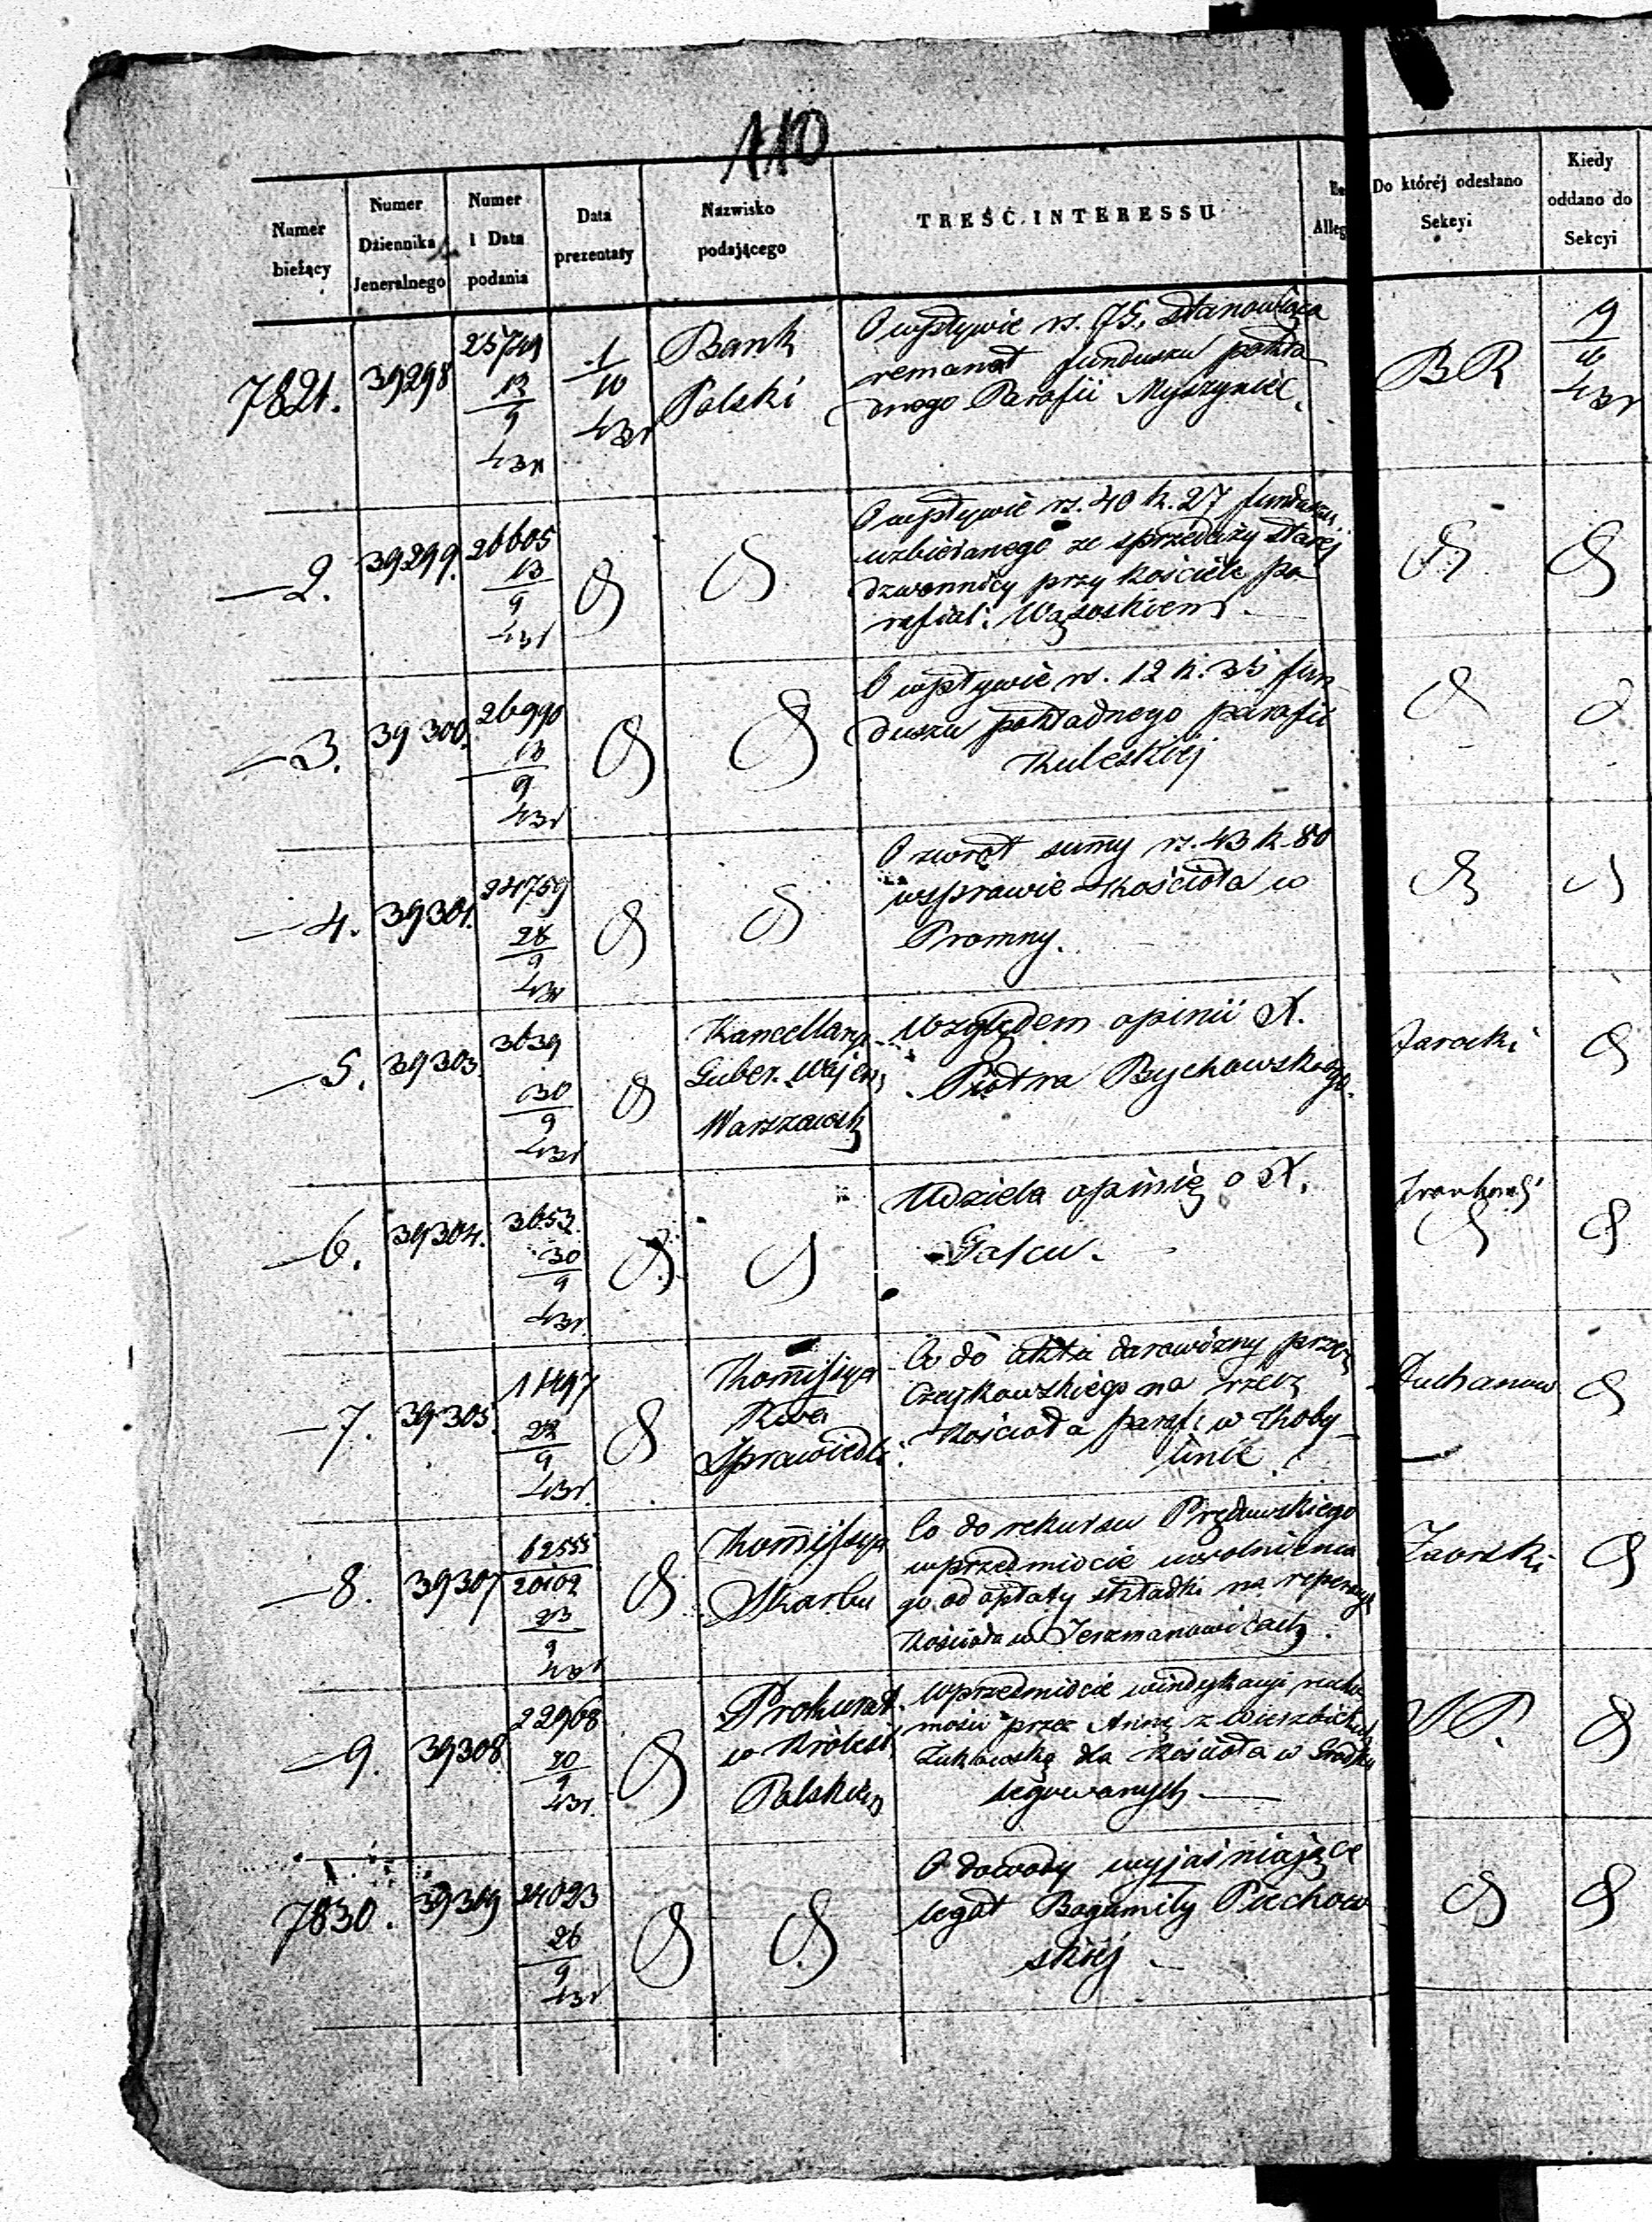 110
Numer bieżący
Numer Dziennika Jeneralnego
Numer i Data podania
Data prezentaty
Nazwisko podającego
TREŚĆ INTERESSU
Alleg
Do któréj odesłano Sekcyi
Kiedy oddano do Sekcyi
7821. 39298 25749 13/9 431 1/10 431 Bank Polski
O wpływie rs. 75, stanowiąca
remanet funduszu pokła
dnego Parafii Myszyniec.
BR 9/10 431
—2. 39299. 26605 13/9 431
O wpływie rs. 40 k. 27 funduszu
uzbieranego ze sprzedaży starej
dzwonnicy przy kościele pa
rafial: Wąsoskiem. —
—3. 39300. 26990 13/9 431
O wpływie rs. 12 k. 35 fun
duszu pokładnego parafii
Kuleskiej
—4. 39301. 24759 28/9 431
O zwrot summy rs. 43 k. 80
wsprawie kościoła w
Promny.
—5. 39303. 3639 30/9 431
Kancellarya
Guber. Wojen.
Warszawsk
Względem opinii X.
Piotra Bychowskiego.
Jarocki
—6. 39304. 3653. 30/9 431.
Udziela opinię o X.
—7. 39305. 11497 22/9 431.
Kommissya
Rząd.
Sprawiedli:
Co do aktu darowizny przez
Czaykowskiego na rzecz
kościoła paraf: w Koby
linie.
—8. 39307 62555/20102 23/9 431
Kommissya
Skarbu
Co do rekursu
wprzedmiocie uwolnienia
go od opłaty składki na reperacyę
kościoła w Jerzmanowicach.
—9. 39308. 22968 20/9 431.
Prokurat.
w Królest.
Polskiem
Wprzedmiocie windykacyi rucho
mości przez Annę z Wierzbickich
dla kościoła w
legowanych —
7830. 39309 24023 26/9 431
O dowody wyjaśniające
legat Bogumiły Piechow
skiéj —